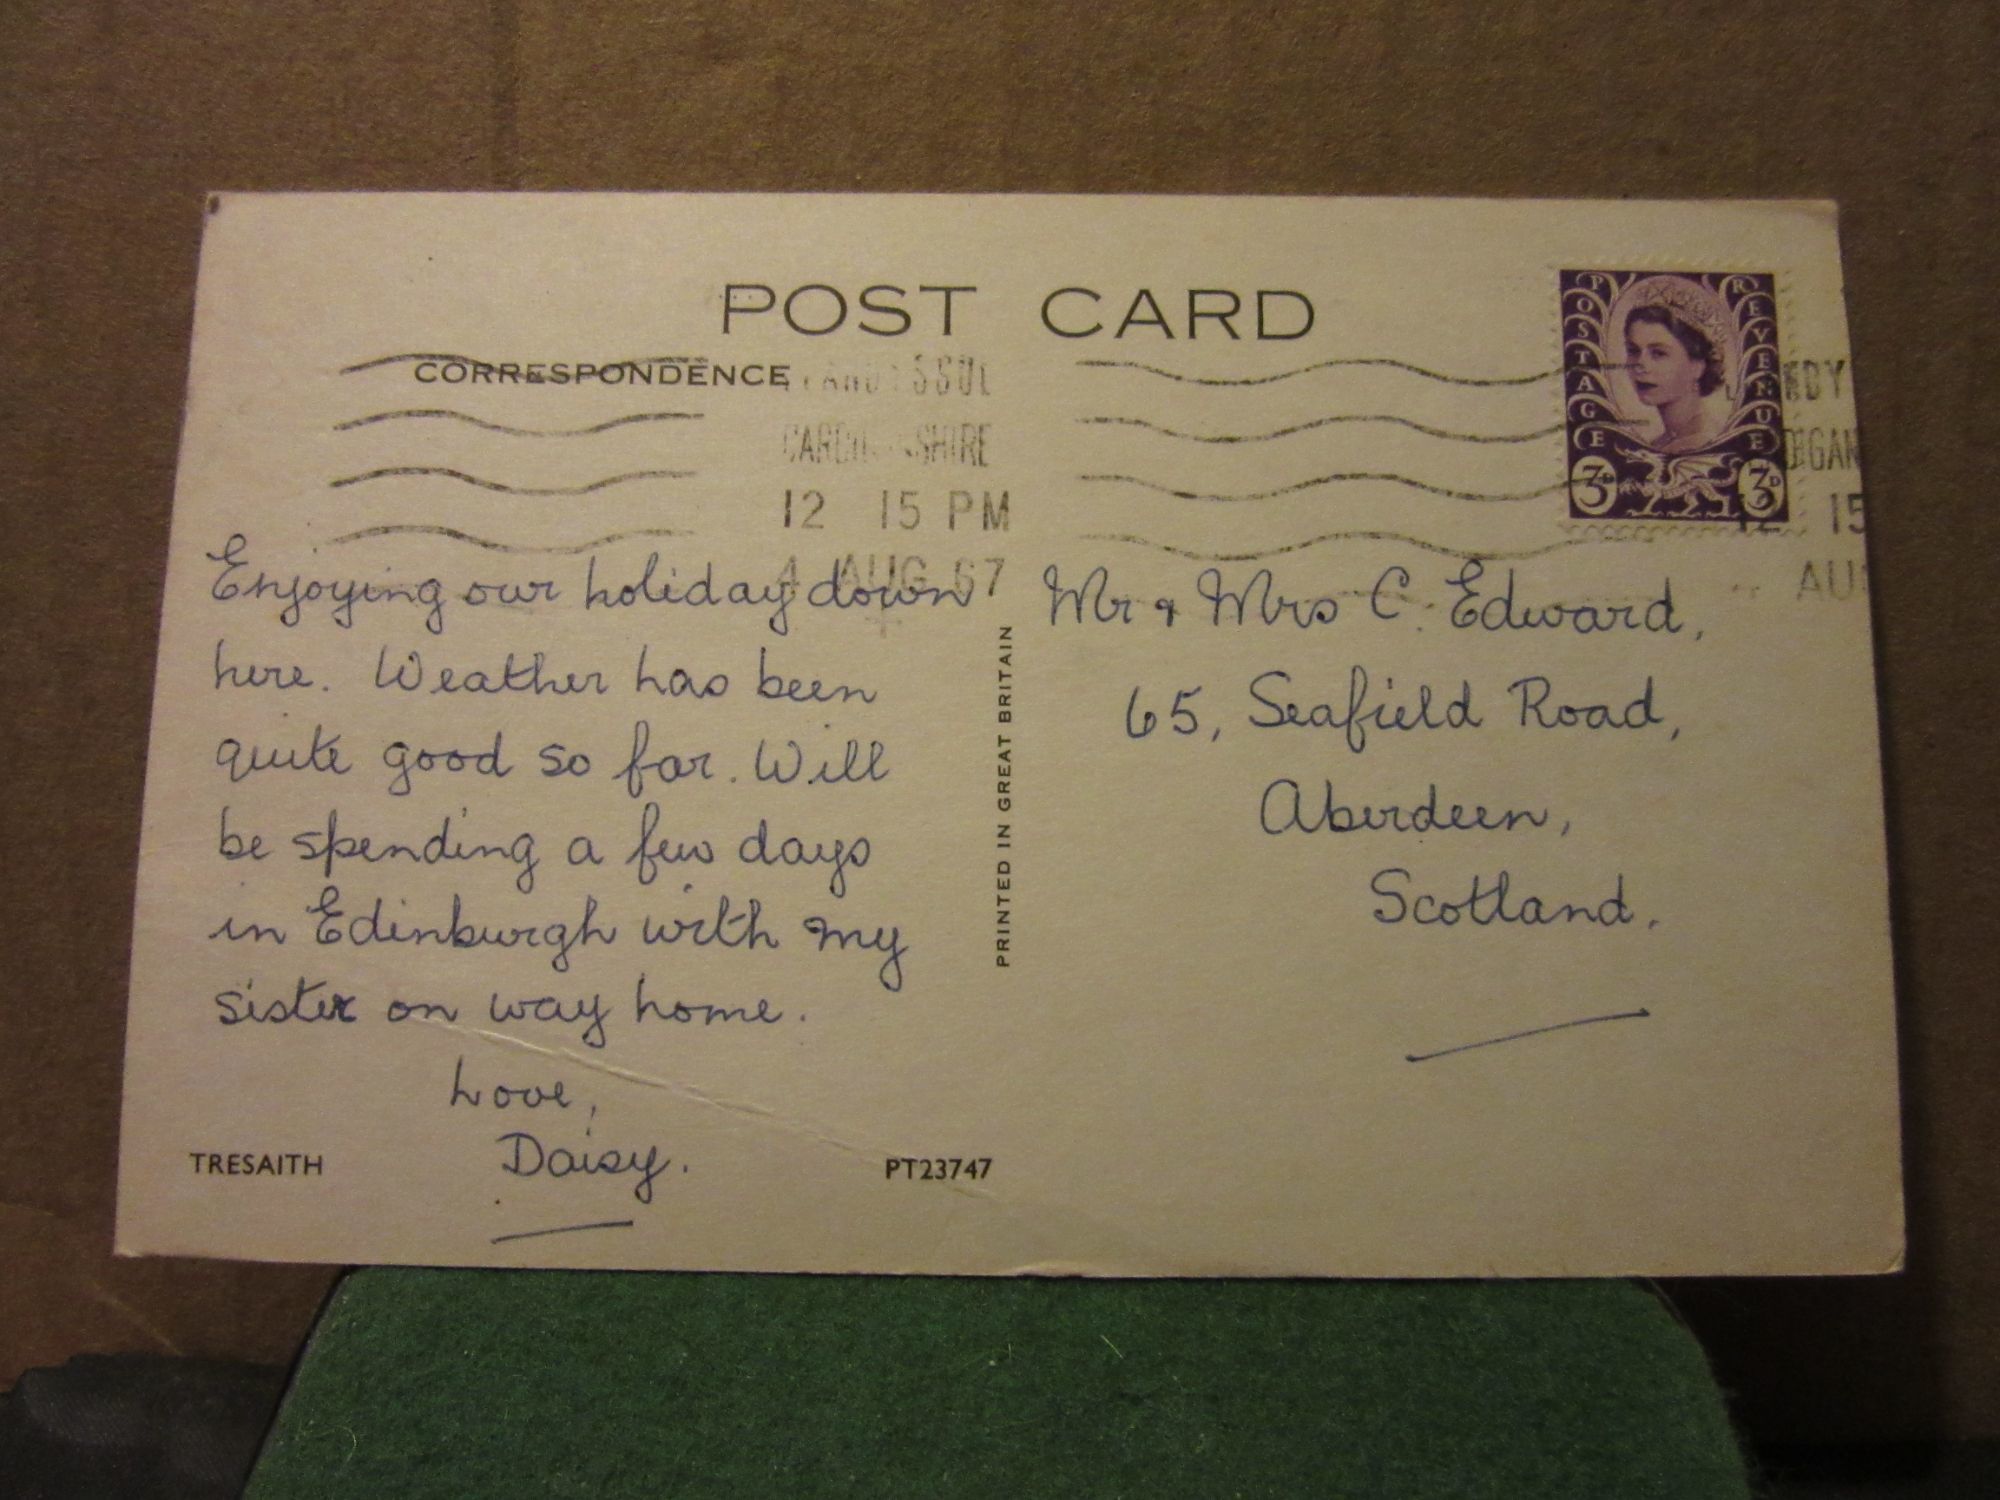 POST CARD
CORRESPONDENCE
POSTAGE REVENUE
3D 3D
12 15 PM
4 AUG 67
12 15
Enjoying our holiday down
here. Weather has been
quite good so far. Will
be spending a few days
in Edinburgh with my
sister on way home.
Love,
Daisy.
TRESAITH
PT23747
PRINTED IN GREAT BRITAIN
Mr & Mrs C. Edward,
65, Seafield Road,
Aberdeen,
Scotland.